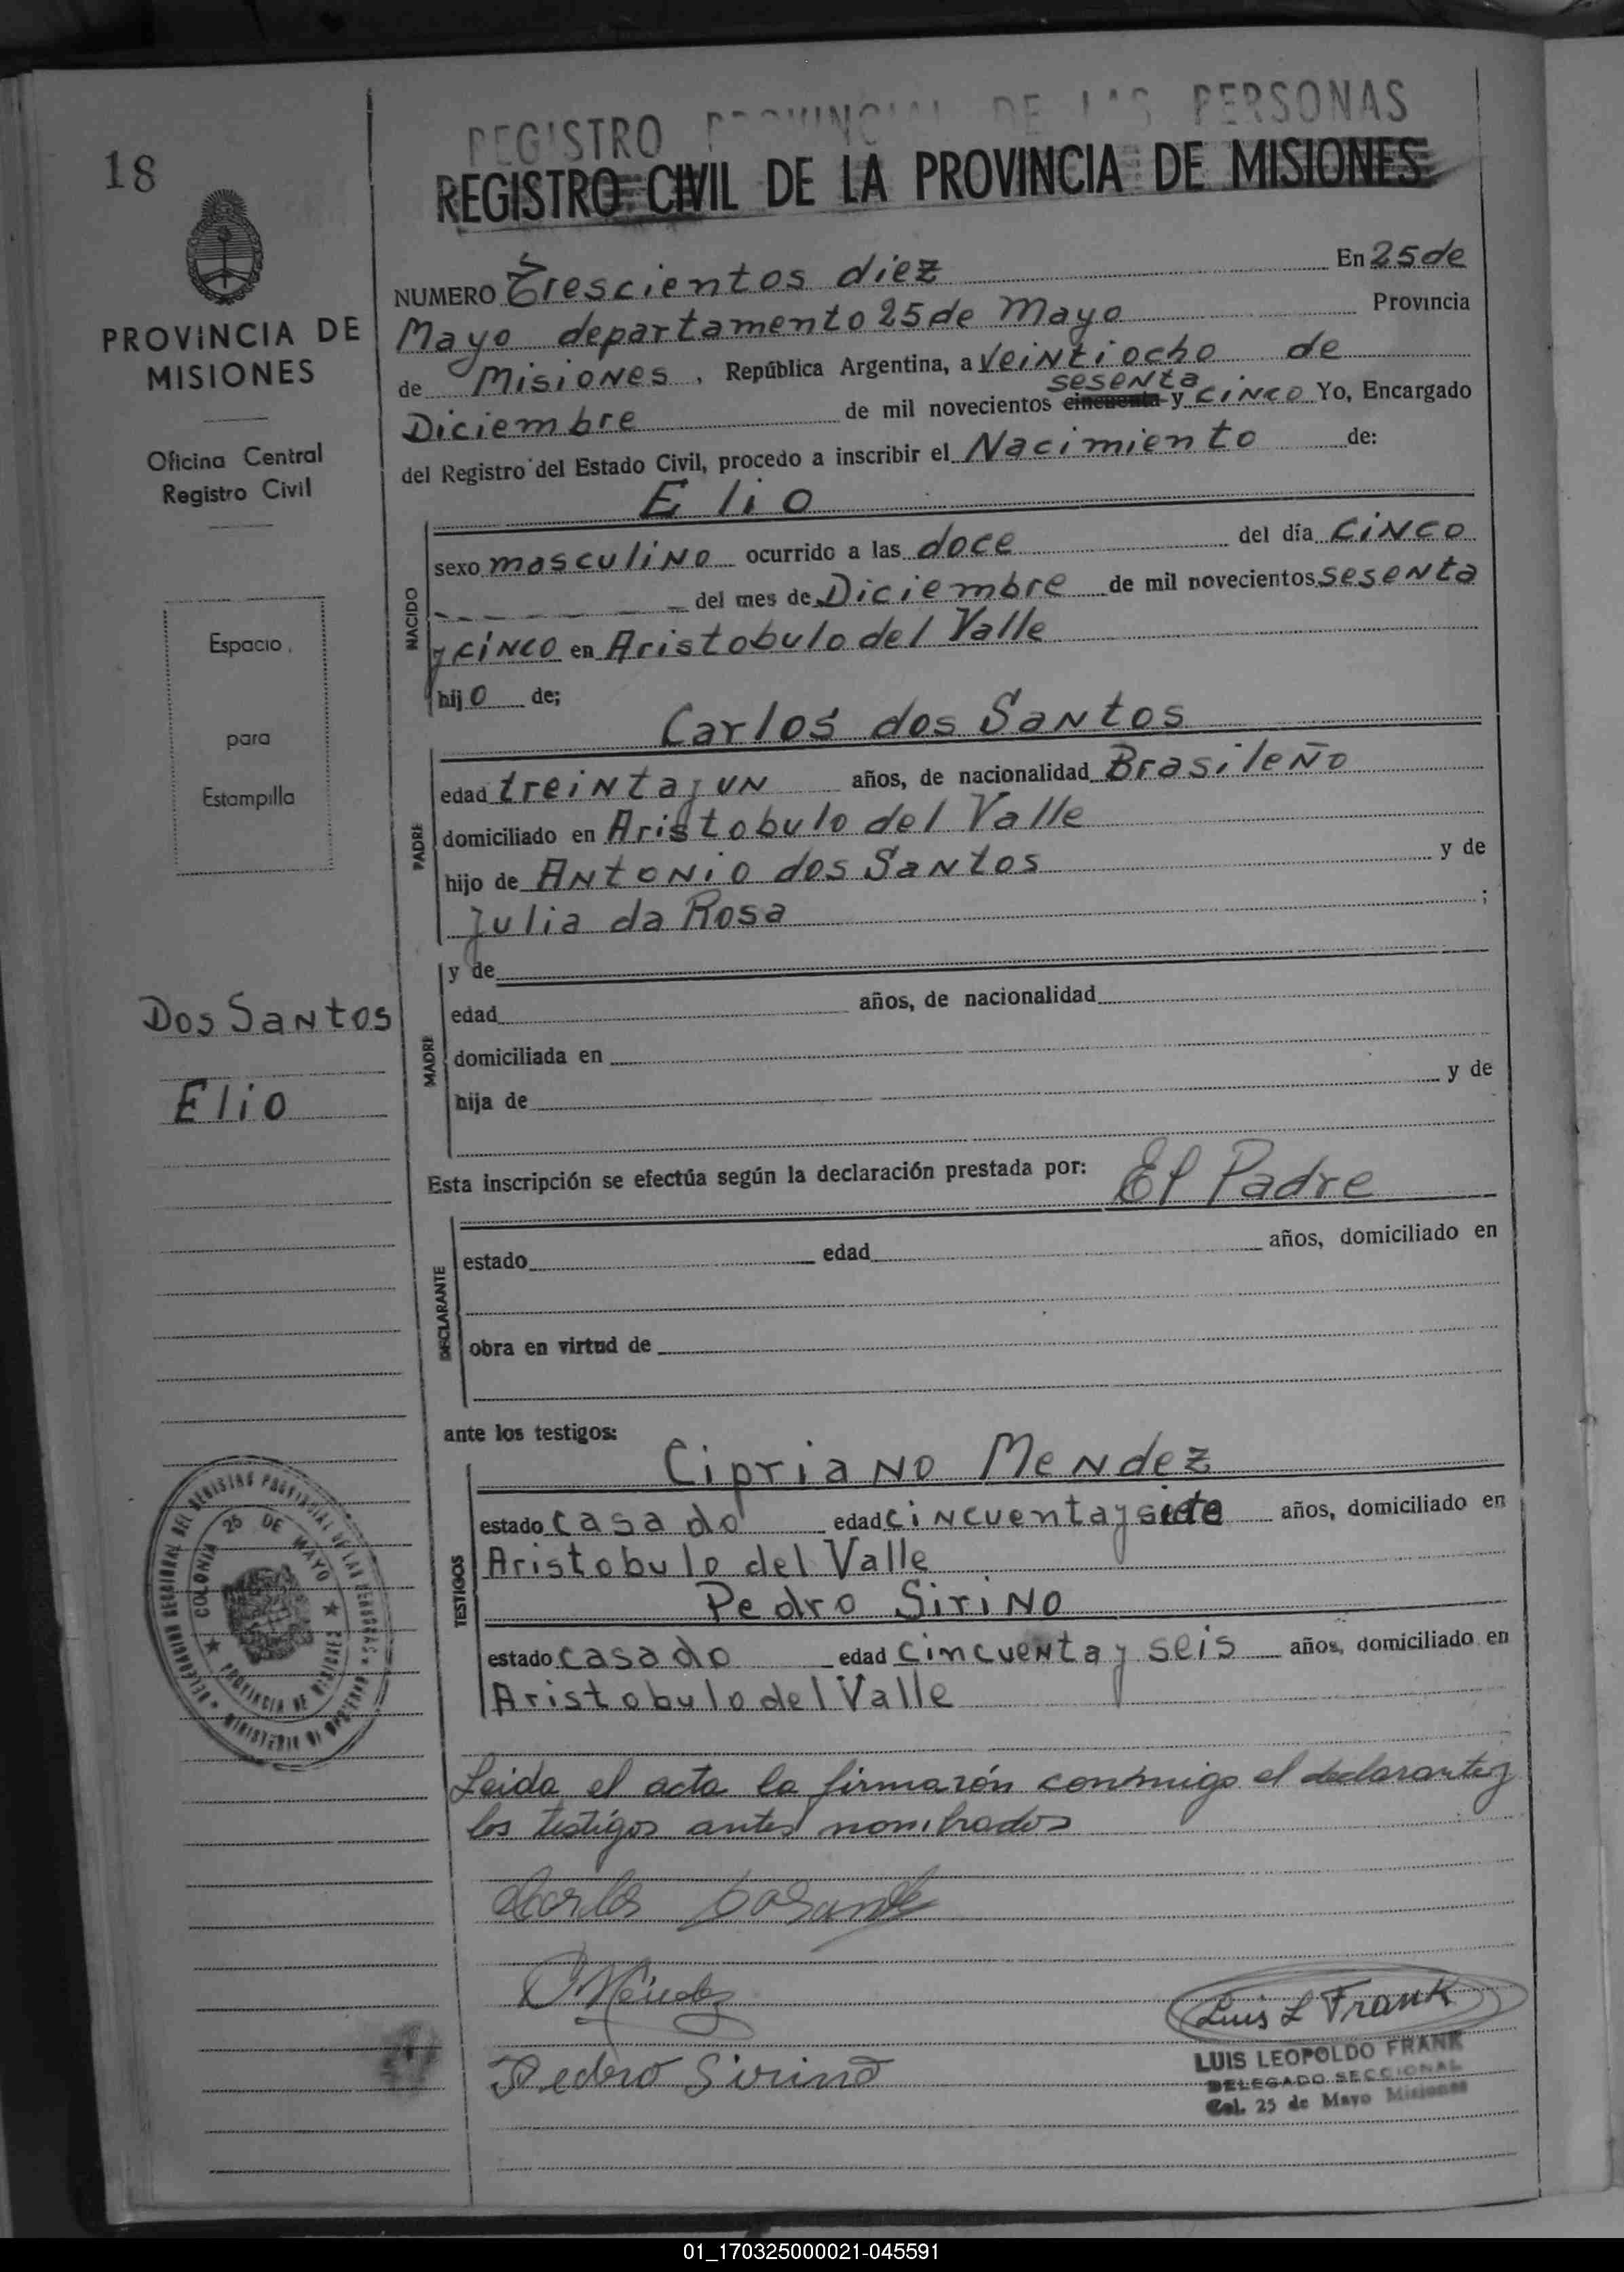 18
REGISTRO PROVINCIAL DE LAS PERSONAS
REGISTRO CIVIL DE LA PROVINCIA DE MISIONES
PROVINCIA DE
MISIONES
Oficina Central
Registro Civil
Espacio
para
Estampilla
Dos Santos
Elio
NUMERO Trescientos diez En 25 de
Mayo departamento 25 de Mayo Provincia
de Misiones, República Argentina, a Veintiocho de
sesenta
Diciembre de mil novecientos cincuenta y cinco Yo, Encargado
del Registro del Estado Civil, procedo a inscribir el Nacimiento de:
Elio
NACIDO
sexo masculino ocurrido a las doce del día cinco
del mes de Diciembre de mil novecientos sesenta
y cinco en Aristobulo del Valle
hijo de;
Carlos dos Santos
PADRE
edad treinta y un años, de nacionalidad Brasileño
domiciliado en Aristobulo del Valle
hijo de Antonio dos Santos y de
Julia da Rosa ;
MADRE
y de
edad años, de nacionalidad
domiciliada en
hija de y de
Esta inscripción se efectúa según la declaración prestada por: El Padre
DECLARANTE
estado edad años, domiciliado en
obra en virtud de
ante los testigos:
Cipriano Mendez
TESTIGOS
estado casado edad cincuenta y siete años, domiciliado en
Aristobulo del Valle
Pedro Sirino
estado casado edad cincuenta y seis años, domiciliado en
Aristobulo del Valle
Leida el acta la firmarón conmigo el declarante y
los testigos antes nombrados
Carlos
Mendez
Pedro Sirino
Luis L Frank
LUIS LEOPOLDO FRANK
DELEGADO SECCIONAL
Col. 25 de Mayo Misiones
DELEGACION SECCIONAL DEL REGISTRO PROVINCIAL DE LAS PERSONAS
MINISTERIO DE GOBIERNO
COLONIA 25 DE MAYO
PROVINCIA DE MISIONES
01_170325000021-045591